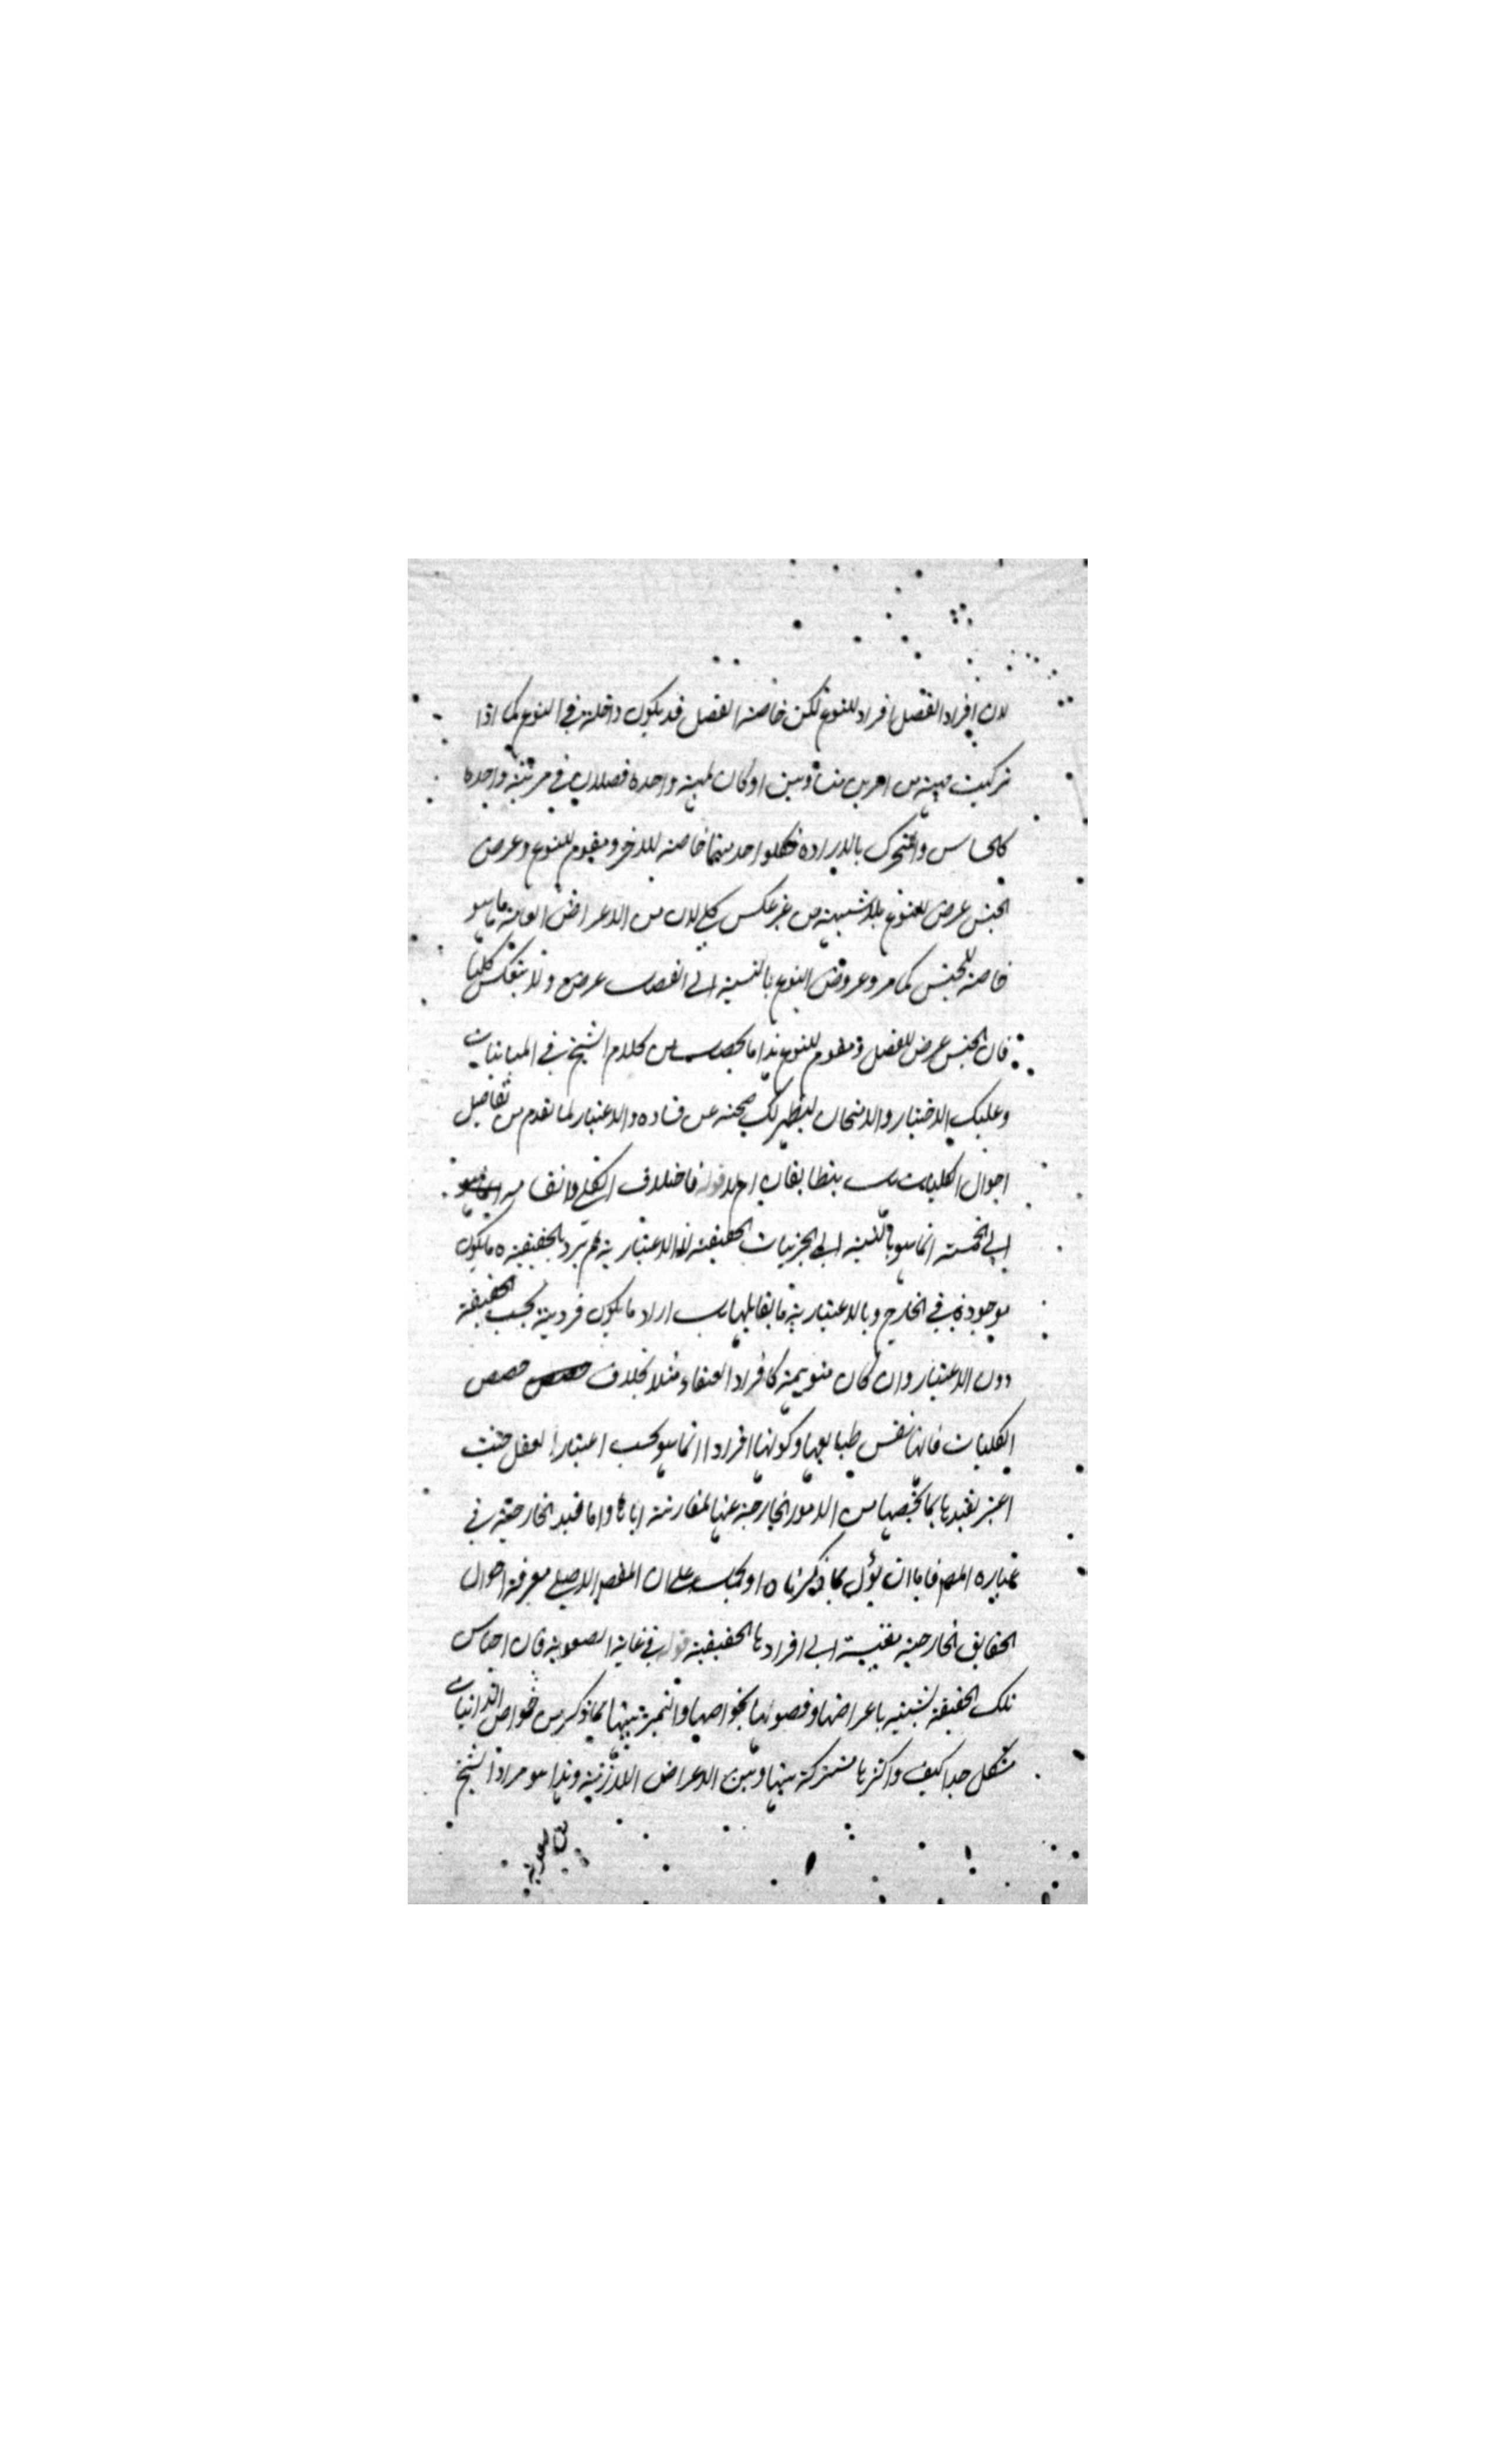 لان افراد الفصل افراد للنوع لكن خاصة الفصل قد يكون داخلة في النوع كما اذا
تركبت مهية من امرين متساويين او كان لمهية واحدة فصلان في مرتبة واحدة
كالحساس والمتحرك بالارادة فكل واحد منهما خاصة للاخر ومقوم للنوع وعرض
الجنس عرض للنوع بلا شبهة من غير عكس كلي لان من الاعراض العامة ما هو
خاصة للجنس كما مر وعروض النوع بالنسبة الى الفصل عرض ولا ينعكس كليا
فان الجنس عرض للفصل ومقوم للنوع هذا ما يحصل من كلام الشيخ في المباينات
وعليك الاختبار والامتحان ليظهر لك صحته عن فساده والاعتبار لما تقدم من تفاصيل
احوال الكليات بتطابقان ام لا قوله فاختلاف الكلي وانقسامه
الى الخمسة انما هو بالنسبة الى الجزئيات الحقيقية لا الاعتبارية لم يرد بالحقيقية ما يكون
موجودة في الخارج وبالاعتبارية ما يقابلها بل اراد ما يكون فرديته بحسب الحقيقة
دون الاعتبار وان كان متوهمة كافراد العنقاء مثلا بخلاف حصص
الكليات فانها نفس طبايعها وكونها افرادا انما هو بحسب اعتبار العقل حيث
اعتبر تقيدها بما يخصها من الامور الخارجة عنها لمقارنته اياها واما قيد الخارجية في
عبارة المصـ فاما ان يؤل بما ذكرناه او يحمل على ان المقصـ الاصلي معرفة احوال
الحقايق الخارجية مقيسة الى افرادها الحقيقية قوله في غاية الصعوبة فان اجناس
تلك الحقيقة تشتبه باعراضها وفصولها بخواصها والتميز بينها بما ذكر من خواص الذاتيات
مشكل جدا كيف واكثرها مشتركة بينها وبين الاعراض اللازمة وهذا هو مراد الشيخ